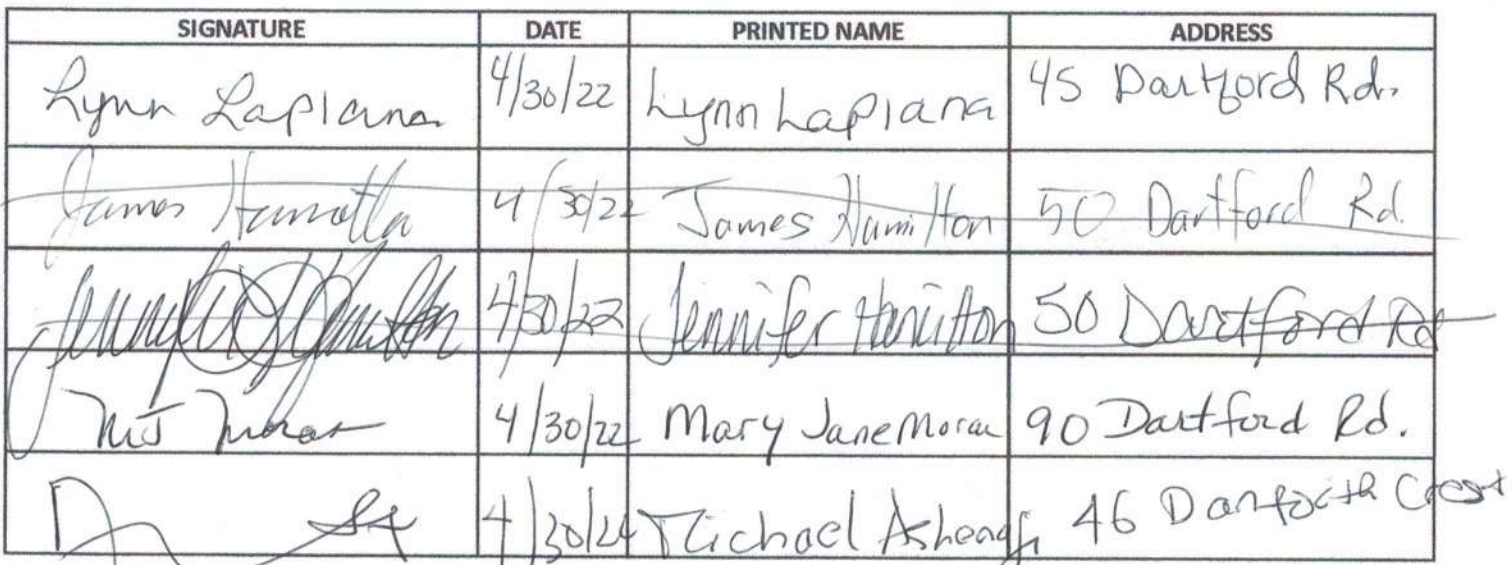 SIGNATURE DATE PRINTED NAME ADDRESS
Lynn Lapiana 4/30/22 Lynn Lapiana 45 Dartford Rd.
James Hamilton 4/30/22 James Hamilton 50 Dartford Rd.
Jennifer Hamilton 4/30/22 Jennifer Hamilton 50 Dartford Rd
MJ Moran 4/30/22 Mary Jane Moran 90 Dartford Rd.
Michael 46 Danforth Cresent